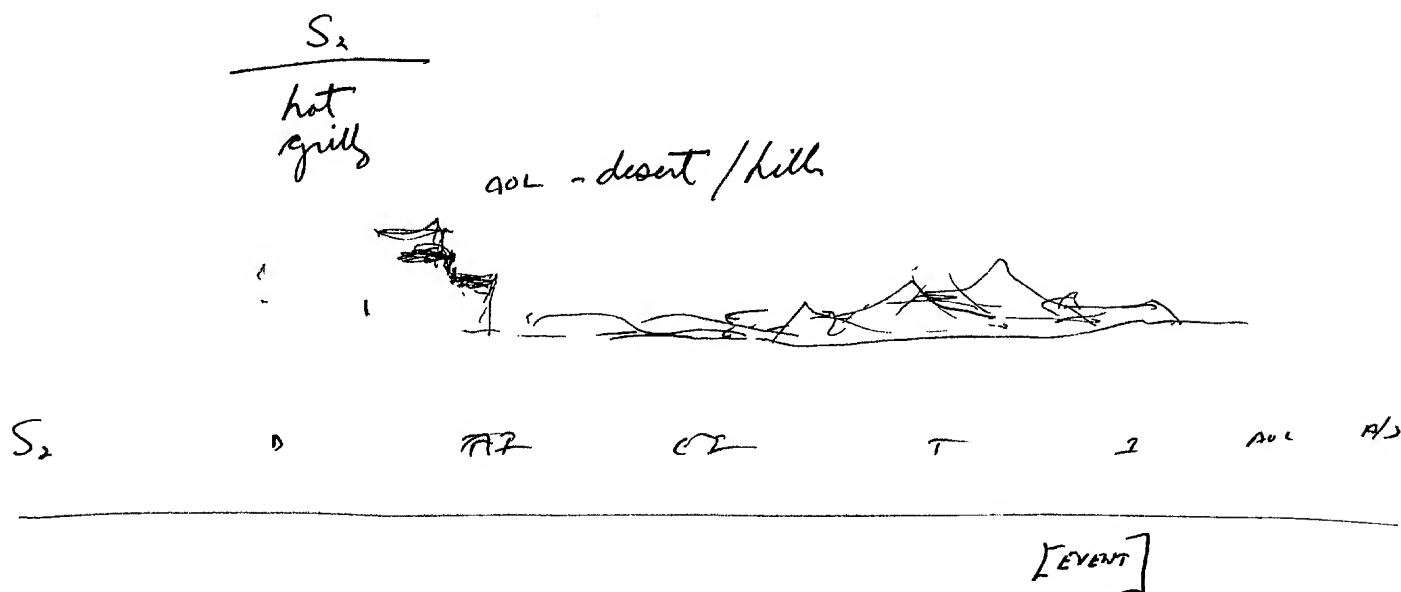 S2
hot
gritty
AOL - desert / hills
S2 D AI EI T I AOL A/S
[EVENT]